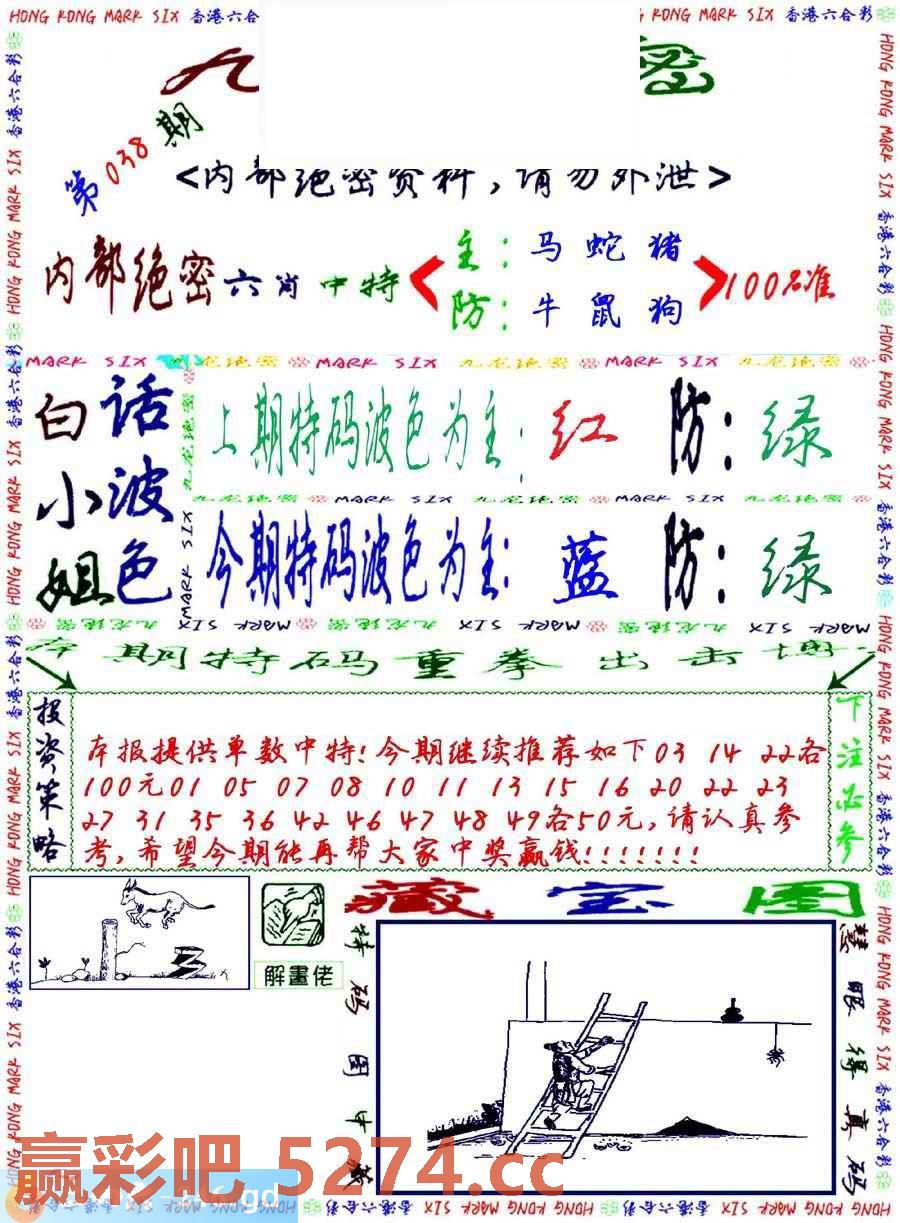 HONG KONG MARK SIX 香港六合彩
KONG MARK SIX 香港六合彩
九
密
第038期
<内部绝密资料,请勿外泄>
内部绝密六肖中特
主:马 蛇 猪
防:牛 鼠 狗
100%准
MARK SIX 九龙绝密 MARK SIX 九龙绝密 MARK SIX 九龙绝密
白话
小波
姐色
上期特码波色为主:红 防:绿
九龙绝密 MARK SIX 九龙绝密 MARK SIX 九龙绝密
今期特码波色为主:蓝 防:绿
MARK SIX 九龙绝密 MARK SIX 九龙绝密 MARK SIX 九龙绝密
本期特码重拳出击
投资策略
本报提供单数中特!今期继续推荐如下03 14 22各
100元01 05 07 08 10 11 13 15 16 20 22 23
27 31 35 36 42 46 47 48 49各50元,请认真参
考,希望今期能再帮大家中奖赢钱!!!!!!!
下注必参
解畫佬
藏宝图
特码图中藏
慧眼得真码
赢彩吧 5274.cc
香港六合彩 HONG KONG MARK SIX 香港六合彩 HONG KONG MARK SIX